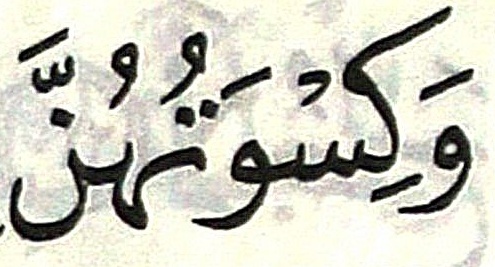 وَكِسْوَتُهُنَّ